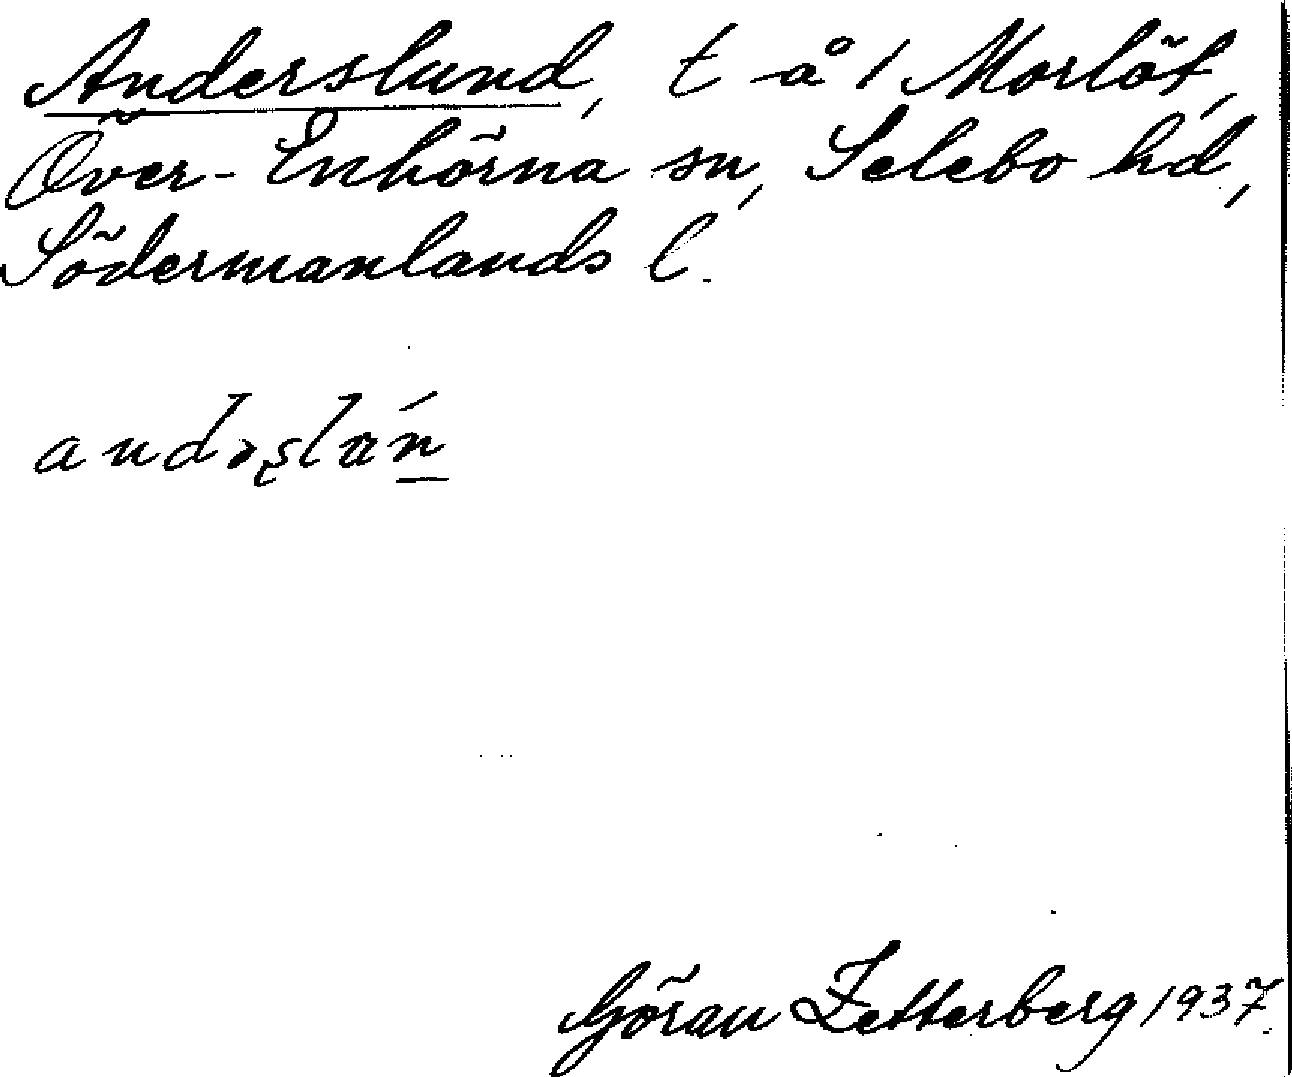 Anderslund, t å / Morlöt,
Över-Enhörna sn, Selebo hd,
Södermanlands l.
Göran Zetterberg 1937.